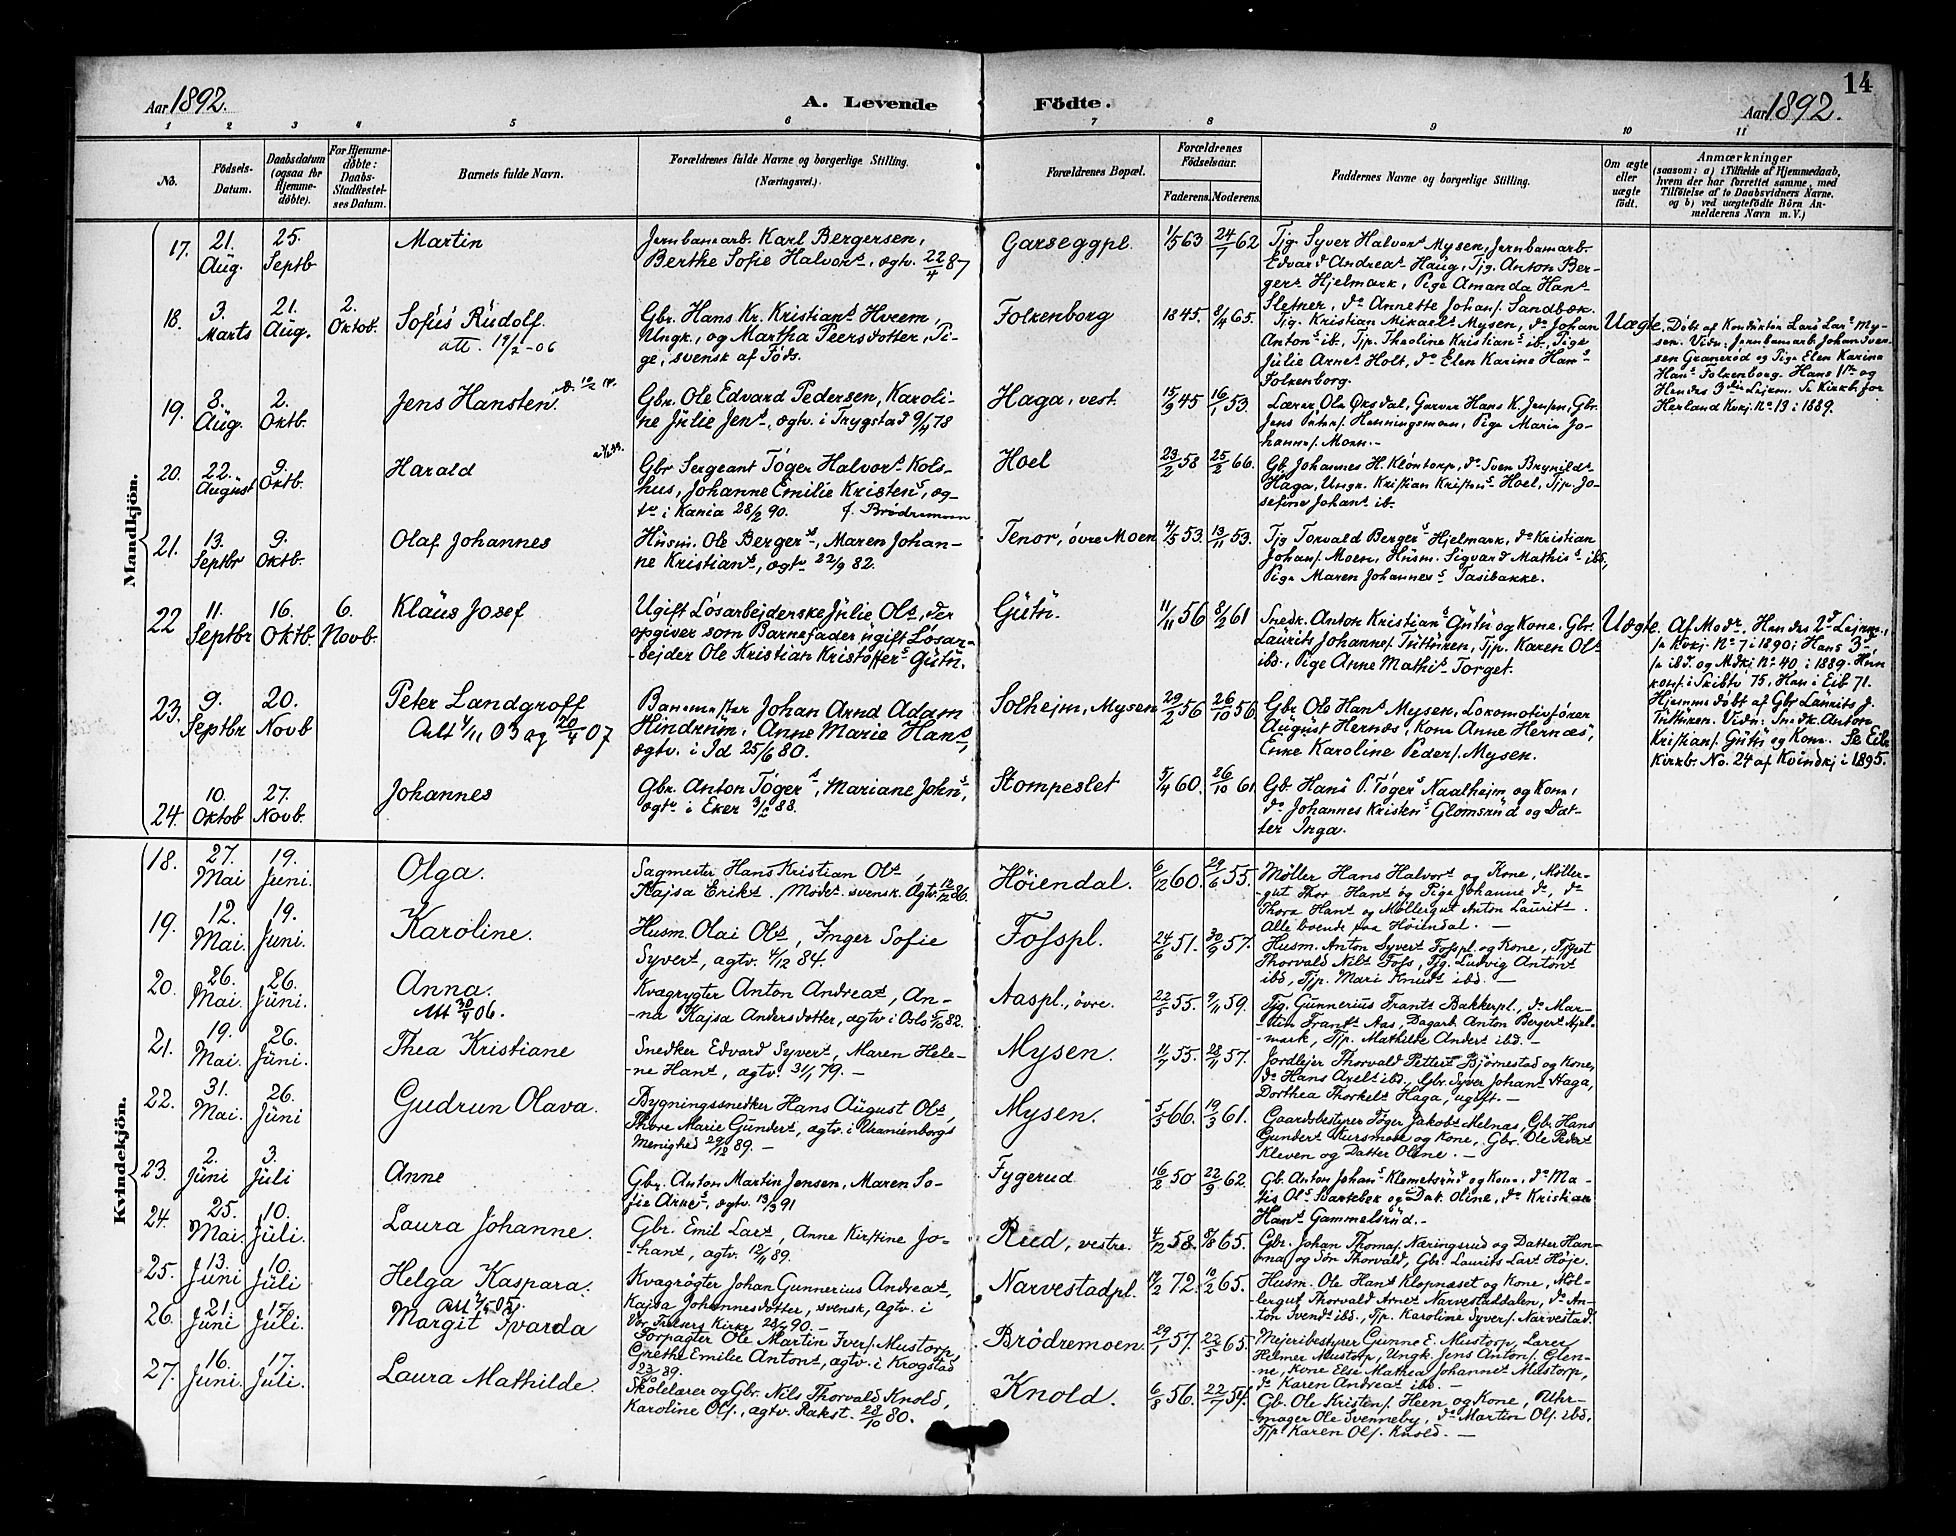 14
Aar 1892. A. Levende Fødte. Aar 1892.
1 2 3 4 5 6 7 8 9 10 11
No.
Fødsels-
Datum.
Daabsdatum
(ogsaa for
Hjemme-
døbte).
For Hjemme-
døbte:
Daabs-
Stadfæstel-
ses Datum.
Barnets fulde Navn.
Forældrenes fulde Navne og borgerlige Stilling.
(Næringsvei.)
Forældrenes Bopæl.
Forældrenes
Fødselsaar.
Faderens. Moderens.
Faddernes Navne og borgerlige Stilling.
Om ægte
eller
uægte
født.
Anmærkninger
(saasom: a) i Tilfælde af Hjemmedaab,
hvem der har forrettet samme, med
Tilføielse af to Daabsvidners Navne.
og b) ved uægtefødte Børn An-
melderens Navn m. V.)
Mandkjøn.
17. 21. Aug. 25. Septb
Martin
Jernbanarb. Karl Bergersen,
Berthe Sofie Halvors., ægtv. 22/4 87
Garseggpl. 1/5 63 24/7 62
Tjg. Syver Halvors Mysen, Jernbanarb.
Edvard Andreas Haug, Tjg. Anton Ber-
gers Hjelmark, Pige Amanda Hans
Sletner, do Annette Johans. Sandbæk.
18. 3. Marts 21. Aug. 2. Oktob.
Sofus Rudolf.
att. 19/2-06
Gbr. Hans Kr. Kristians Hveem,
Ungk., og Martha Peersdotter, Pi-
ge, svensk af Føds.
Folkenborg 1845. 8/4 65.
Tjg. Kristian Mikaels Mysen, do Johan
Antons ib., Tjp. Theoline Kristians ib., Pige
Julie Arnes Holt, do Elen Karine Hans
Folkenborg.
Uægte. Døbt af Konduktør Lars Lars My-
sen. Vidn. Jernbanarb. Johan Iver-
sen Granerød og Pige Elen Karine
Hans Folkenborg. Hans 1ste og
Hendes 3die Lejerm. Se Kirkb. for
Herland Kvkj. No 13 i 1889.
19. 8. Aug. 2. Oktb.
Jens Hansten.
Gbr. Ole Edvard Pedersen, Karoli-
ne Julie Jens, ægtv. i Trygstad 9/4 78
Haga, vest. 15/9 45 16/1 53.
Lærer Ole Ørsdal, Garver Hans K. Jensen, Gbr.
Jens Peters. Henningsmoen, Pige Marie Jo-
hannes. Moen.-
20. 22. August 9. Oktb.
Harald
Gbr Sergeant Tøger Halvors Kols-
hus, Johanne Emilie Kristens, æg-
tv. i Kania 28/2 90. f. Brødremoen
Hoel 23/2 58 25/2 66.
Gb. Johannes H. Kløntorp, do Sven Brynilds
Haga, Ungk. Kristian Kristens Hoel, Tjp. Jo-
sefine Johans ib.
21. 13. Septbr 9. Oktb.
Olaf Johannes
Husm. Ole Bergers, Maren Johan-
ne Kristians, ægtv. 22/9 82.
Tenor, øvre Moen 4/5 53. 13/11 53.
Tjg Torvald Bergers Hjelmark, do Kristian
Johans. Moen, Husm. Sigvard Mathis ibd,
Pige Maren Johannes Tasibakke.
22 11. Septbr 16. Oktb. 6. Novb.
Klaus Josef
Ugift Løsarbejderske Julie Ols, der
opgiver som Barnefader ugift Løsar-
bejder Ole Kristian Kristoffers Gutu.
Gutu. 11/11 56 8/2 61
Snedk. Anton Kristians Gutu og Kone, Gbr.
Laurits Johannes. Tutturen, Tjp. Karen Ols
ibd., Pige Anne Mathis Torget.
Uægte. Af Modr. Hendes 2d Lejerm.,
se Kvkj. No 7 i 1890; Hans 3d,
se ibd. og Mdkj No 40 i 1889. Hun
konf. i Skibtv 75, Han i Eib 71.
Hjemmedøbt af Gbr Laurits J.
Tutturen. Vidn. Snedk. Anton
Kristians. Gutu og Kone. Se Eib
Kirkbr No. 24 af Kvindkj i 1895.
23. 9. Septbr 20. Novb
Peter Landgroff
Att 4/11 03 og 20/4 07
Banemester Johan Arnd Adam
Hindrum, Anne Marie Hans,
ægtv. i Id 25/6 80.
Solheim, Mysen 29/2 56 26/10 56.
Gbr Ole Hans Mysen, Lokomotivfører
August Hernæs, Kone Anne Hernæs,
Enke Karoline Peders. Mysen.
24. 10. Oktob 27. Novb.
Johannes
Gbr. Anton Tøgers, Mariane Johns,
ægtv i Eker 3/2 88.
Stompeslet 5/4 60. 26/10 61
Gb. Hans P. Tøgers Naalheim og Kone,
do Johannes Kristens Glomsrud og Dat-
ter Inga.
Kvindekjøn.
18. 27. Mai 19. Juni.
Olga.
Sagmester Hans Kristian Ols,
Kajsa Eriks. Modr. svensk. Ægtv. 12/12 86.
Høiendal. 6/12 60. 29/6 55.
Møller Hans Halvors og Kone, Møller-
gut Thor Hans og Pige Johanne do, do
Thora Hans og Møllergut Anton Laurits.
Alle boende paa Høiendal. -
19. 12. Mai. 19. Juni.
Karoline.
Husm. Olai Ols, Inger Sofie
Syvers, ægtv. 4/12 84.
Fosspl. 24/6 51. 30/9 57.
Husm. Anton Syvers Fosspl. og Kone, Tjgut
Thorvald Nils Foss, Tjg. Ludvig Antons
ibd, Tjp. Mari Knuds ibd. -
20. 26. Mai. 26. Juni.
Anna.
Att 30/4 06.
Kvægrygter Anton Andreas, An-
na Kajsa Andersdotter, ægtv. i Oslo 5/10 82.
Aaspl., øvre. 22/5 55. 9/11 59.
Tjg. Gunnerius Frants Bakkerpl., do Mar-
tin Frants Aas, Dagarb. Anton Bergers Hjel-
mark, Tjp. Mathilde Anders ibd. -
21. 19. Mai. 26. Juni.
Thea Kristiane
Snedker Edvard Syvers, Maren Hele-
ne Hans, ægtv. 31/1 79. -
Mysen. 11/7 55. 28/11 57.
Jordlejer Thorvald Petters Bjørnestad og Kone,
do Hans Axels ibd., Gbr. Syver Johans Haga,
Dorthea Thorkels Haga, ugift. -
22. 31. Mai. 26. Juni
Gudrun Olava.
Bygningssnedker Hans August Ols,
Thore Marie Gunders, ægtv. i Uranienborgs
Menighed 29/12 89. -
Mysen. 5/5 66. 19/3 61.
Gaardsbestyrer Tøger Jakobs Melnæs, Gb. Hans
Gunders Aursmoe og Kone, Gbr. Ole Peders
Kleven og Datter Oline. -
23. 2. Juni 3. Juli
Anne
Gbr. Anton Martin Jensen, Maren So-
fie Arnes, ægtv. 13/3 91
Fygerud 16/2 50 22/9 62.
Gb. Anton Johans Klemetsrud og Kone, do Ma-
tis Ols Slartebek og Dat. Oline, do Kristian
Hans Gammelsrud.-
24. 25. Mai. 10. Juli.
Laura Johanne.
Gbr. Emil Lars, Anne Kirstine Jo-
hans, ægtv. 12/11 89.
Rud, vestre. 4/12 58. 9/8 65.
Gbr. Johan Thomas. Næringsrud og Datter Han-
na og Søn Thorvald, Gbr. Laurits Lars Høje.
25. 13. Juni 10. Juli
Helga Kaspara.
Att 2/5 05.
Kvægrøgter Johan Gunnerius Andreas,
Kajsa Johannesdotter, svensk, ægtv. i
Vor Frelsers Kirke 28/2 90. -
Narvestadpl. 19/2 72. 10/2 65.
Husm. Ole Hans Klopnæset og Kone, Møl-
lergut Thorvald Arnes Narvestaddalen, do An-
ton Svends ibd., Tjp. Karoline Syvers. Narvestad.
26. 21. Juni 17. Juli.
Margit Ivarda
Forpagter Ole Martin Ivers. Mustorp,
Grethe Emilie Antons, ægtv. i Krogstad
Brødremoen. 29/1 57. 22/5 65.
Mejeribestyrer Gunne E. Mustorp, Lærer
Helmer Mustorp, Ungk. Jens Antons. Glen-
ne, Kone Else Mathea Johannes Mustorp,
do Karen Andreas ibd. -
27. 16. Juni. 17. Juli.
Laura Mathilde.
Skolelærer og Gbr. Nils Thorvald Knold,
Karoline Ols., ægtv. Rakst. 28/10 80.
Knold. 6/8 56. 22/7 54.
Gb. Ole Kristens. Heen og Kone, Uhr-
mager Ole Svenneby, do Martin Ols. ibd,
Tjp. Karen Ols. Knold. -